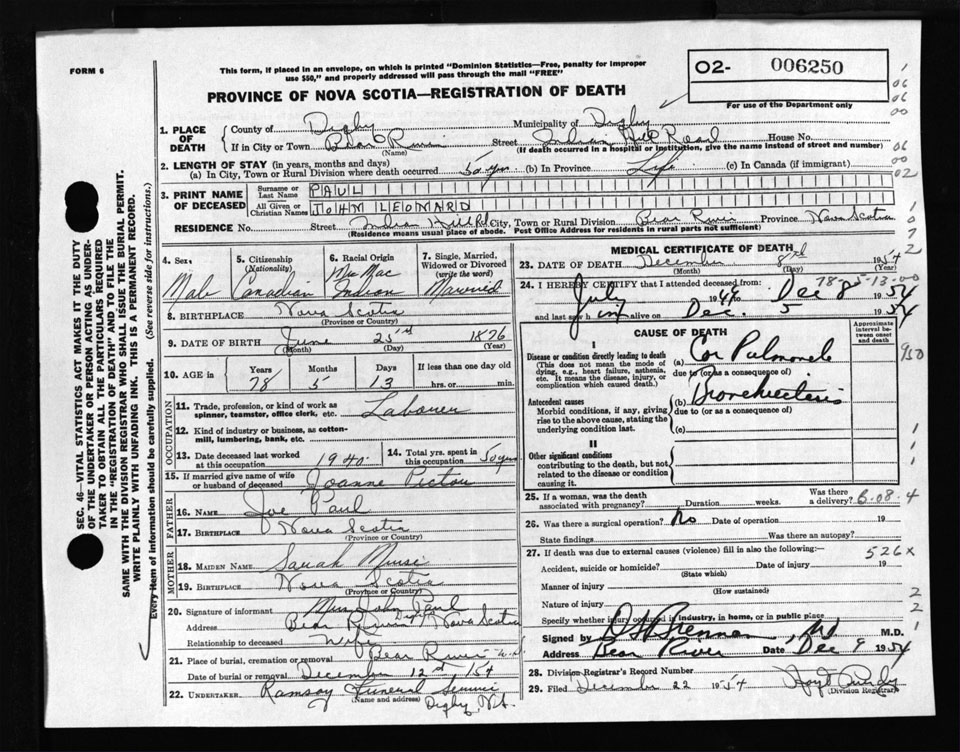 FORM 6
This form, if placed in an envelope, on which is printed "Dominion Statistics—Free, penalty for improper
use $50," and properly addressed will pass through the mail "FREE"
02- 006250
For use of the Department only
PROVINCE OF NOVA SCOTIA—REGISTRATION OF DEATH
1. PLACE OF DEATH
County of Digby Municipality of Digby
If in City or Town Bear River Street Indian Hill Road House No.
(Name) (If death occurred in a hospital or institution, give the name instead of street and number)
2. LENGTH OF STAY (in years, months and days)
(a) In City, Town or Rural Division where death occurred 50 yrs (b) In Province Life (c) In Canada (if immigrant)
3. PRINT NAME OF DECEASED
Surname or Last Name PAUL
All Given or Christian Names JOHN LEONARD
RESIDENCE No. Street Indian Hill Rd City, Town or Rural Division Bear River Province Nova Scotia
(Residence means usual place of abode. Post Office Address for residents in rural parts not sufficient)
4. Sex Male
5. Citizenship (Nationality) Canadian
6. Racial Origin Mic Mac Indian
7. Single, Married, Widowed or Divorced (write the word) Married
8. BIRTHPLACE Nova Scotia
(Province or Country)
9. DATE OF BIRTH June 25 1876
(Month) (Day) (Year)
10. AGE in Years 78 Months 5 Days 13 If less than one day old hrs. or min.
OCCUPATION
11. Trade, profession, or kind of work as spinner, teamster, office clerk, etc. Labourer
12. Kind of industry or business, as cotton-mill, lumbering, bank, etc.
13. Date deceased last worked at this occupation 1940
14. Total yrs. spent in this occupation 50 yrs
15. If married give name of wife or husband of deceased Joanne Pictou
FATHER
16. Name Joe Paul
17. Birthplace Nova Scotia
(Province or Country)
MOTHER
18. Maiden Name Sarah
19. Birthplace Nova Scotia
(Province or Country)
20. Signature of informant Mrs John Paul
Address Bear River Digby Nova Scotia
Relationship to deceased Wife
21. Place of burial, cremation or removal Bear River N.S.
Date of burial or removal December 12th 1954
22. Undertaker Ramsay Funeral Service
(Name and address) Digby, N.S.
MEDICAL CERTIFICATE OF DEATH
23. DATE OF DEATH December 8 1954
(Month) (Day) (Year)
24. I HEREBY CERTIFY that I attended deceased from:
78-5-13-00
July 1946 to Dec 8 1954
and last saw h im alive on Dec. 5 1954
CAUSE OF DEATH
Approximate interval between onset and death
I
Disease or condition directly leading to death (a) Cor Pulmonale
(This does not mean the mode of dying, e.g., heart failure, asthenia, etc. It means the disease, injury, or complication which caused death.)
due to (or as a consequence of)
Antecedent causes (b) Bronchiectasis
Morbid conditions, if any, giving rise to the above cause, stating the underlying condition last.
due to (or as a consequence of)
(c)
II
Other significant conditions
contributing to the death, but not related to the disease or condition causing it.
25. If a woman, was the death associated with pregnancy? Duration weeks. Was there a delivery?
6.08.4
26. Was there a surgical operation? No Date of operation 19
State findings Was there an autopsy?
27. If death was due to external causes (violence) fill in also the following:—
526x
Accident, suicide or homicide? Date of injury 19
(State which)
Manner of injury
(How sustained)
Nature of injury
Specify whether injury occurred in industry, in home, or in public place
Signed by Brennan, MD M.D.
Address Bear River Date Dec 9 1954
28. Division Registrar's Record Number
29. Filed December 22 1954
(Division Registrar)
SEC. 46—VITAL STATISTICS ACT MAKES IT THE DUTY
OF THE UNDERTAKER OR PERSON ACTING AS UNDER-
TAKER TO OBTAIN ALL THE PARTICULARS REQUIRED
IN THE "REGISTRATION OF DEATH" AND TO FILE THE
SAME WITH THE DIVISION REGISTRAR WHO SHALL ISSUE THE BURIAL PERMIT.
WRITE PLAINLY WITH UNFADING INK. THIS IS A PERMANENT RECORD.
Every item of information should be carefully supplied. (See reverse side for instructions.)